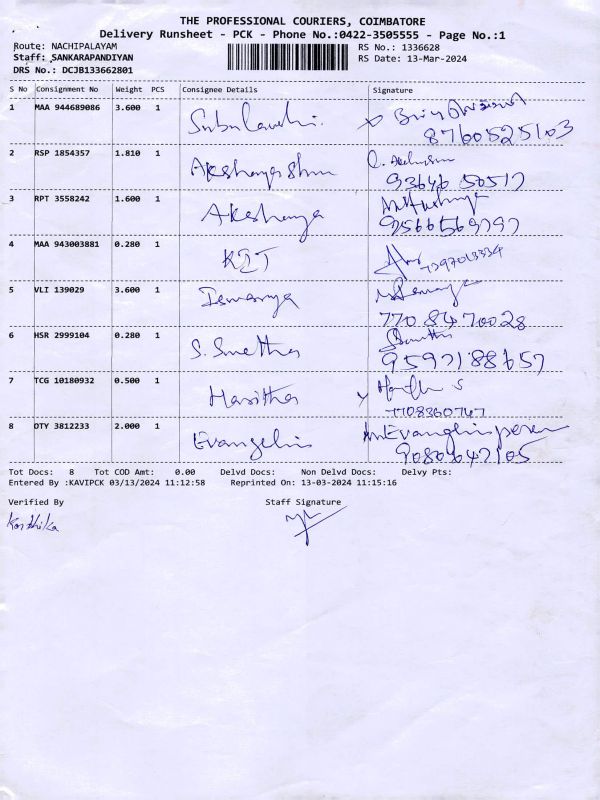 THE PROFESSIONAL COURIERS, COIMBATORE
Delivery Runsheet - PCK - Phone No.:0422-3505555 - Page No.:1
Route: NACHIPALAYAM RS No.: 1336628
Staff: SANKARAPANDIYAN RS Date: 13-Mar-2024
DRS No.: DCJB133662801
S No Consignment No Weight PCS Consignee Details Signature
1 MAA 944689086 3.600 1
8760525103
2 RSP 1854357 1.810 1
93646 50517
3 RPT 3558242 1.600 1 Akshaya
9566569797
4 MAA 943003881 0.280 1
5 VLI 139029 3.600 1
770 8470028
6 HSR 2999104 0.280 1 S. Smetha
9597188657
7 TCG 10180932 0.500 1 Haritha
7708360747
8 OTY 3812233 2.000 1 Evangelin
9080647105
Tot Docs: 8 Tot COD Amt: 0.00 Delvd Docs: Non Delvd Docs: Delvy Pts:
Entered By :KAVIPCK 03/13/2024 11:12:58 Reprinted On: 13-03-2024 11:15:16
Verified By Staff Signature
Karthika